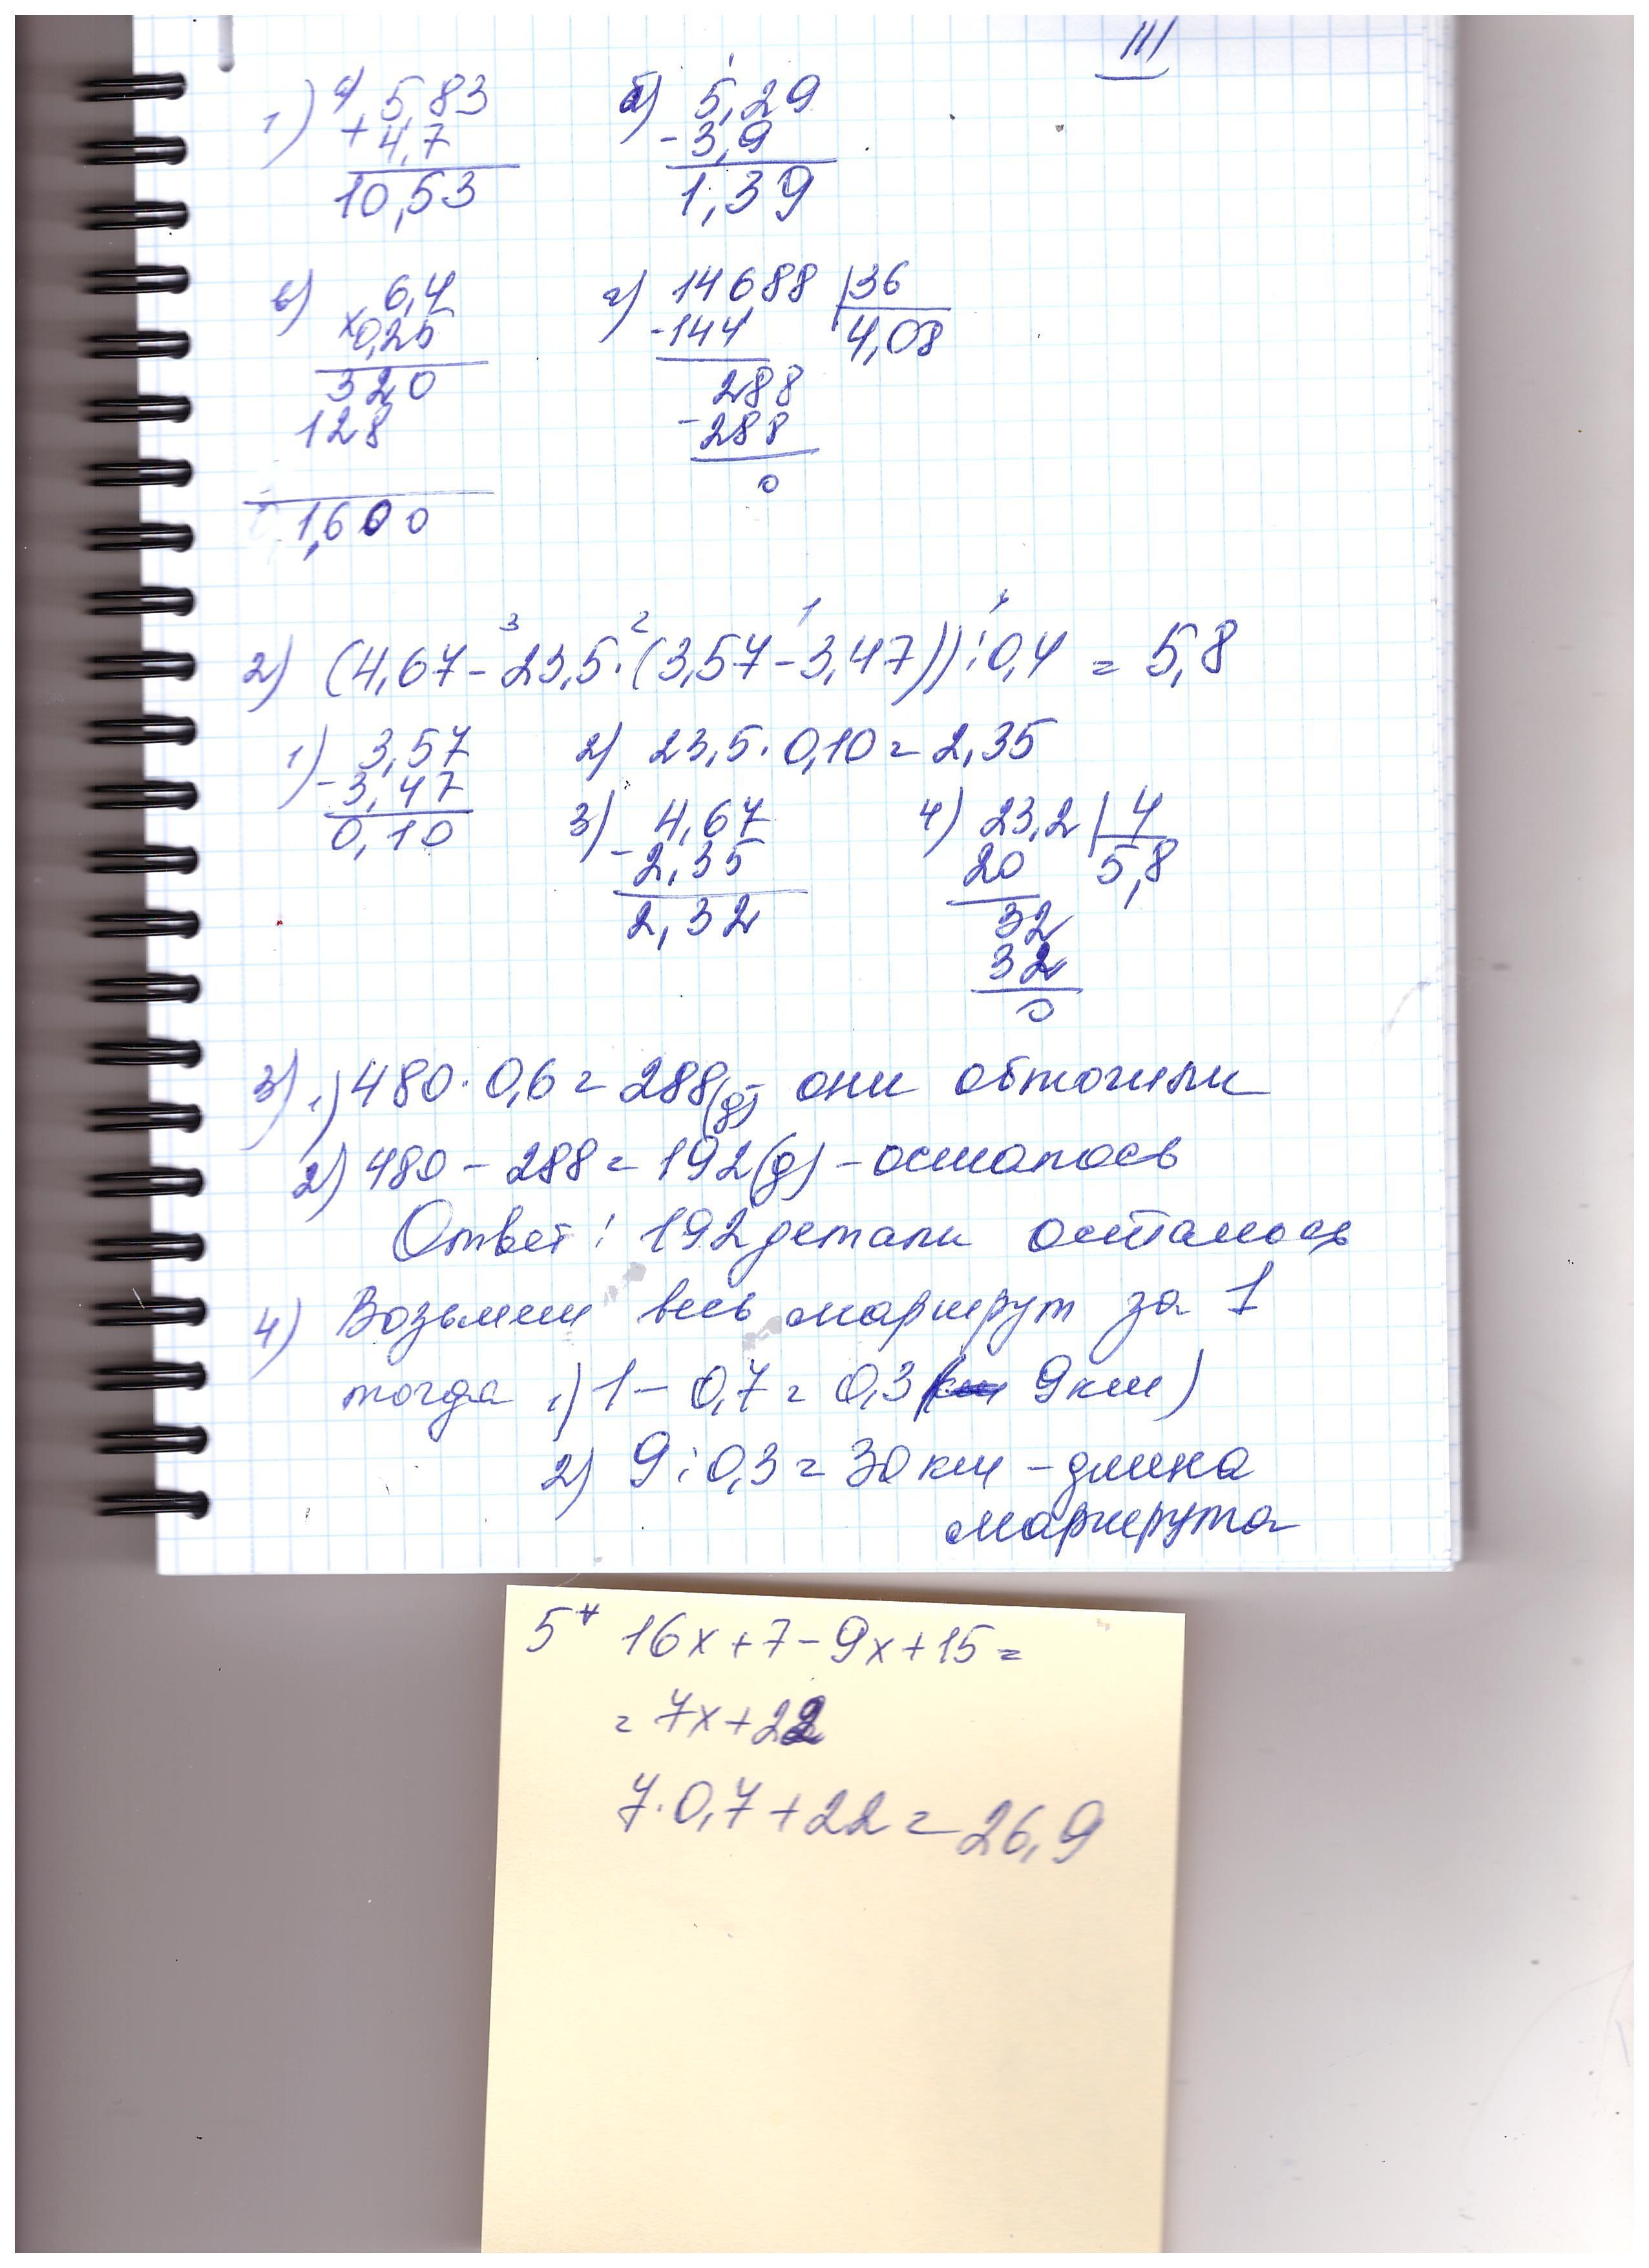 III
1) а) 5,83 б) 5,29
+ 4,7 - 3,9
10,53 1,39
в) 6,4 г) 14688 | 36
x 0,25 - 144 4,08
320 288
128 - 288
0
1,600
3 2 1 4
2) (4,67 - 23,5 · (3,57 - 3,47)) : 0,4 = 5,8
1) 3,57 2) 23,5 · 0,10 = 2,35
- 3,47
0,10
3) 4,67 4) 23,2 | 4
- 2,35 20 5,8
2,32 32
32
0
3) 1) 480 · 0,6 = 288 (д) - они обточили
2) 480 - 288 = 192 (д) - осталось
Ответ: 192 детали осталось
4) Возьмем весь маршрут за 1
тогда 1) 1 - 0,7 = 0,3 (9 км)
2) 9 : 0,3 = 30 км - длина
маршрута
5* 16x + 7 - 9x + 15 =
= 7x + 22
7 · 0,7 + 22 = 26,9